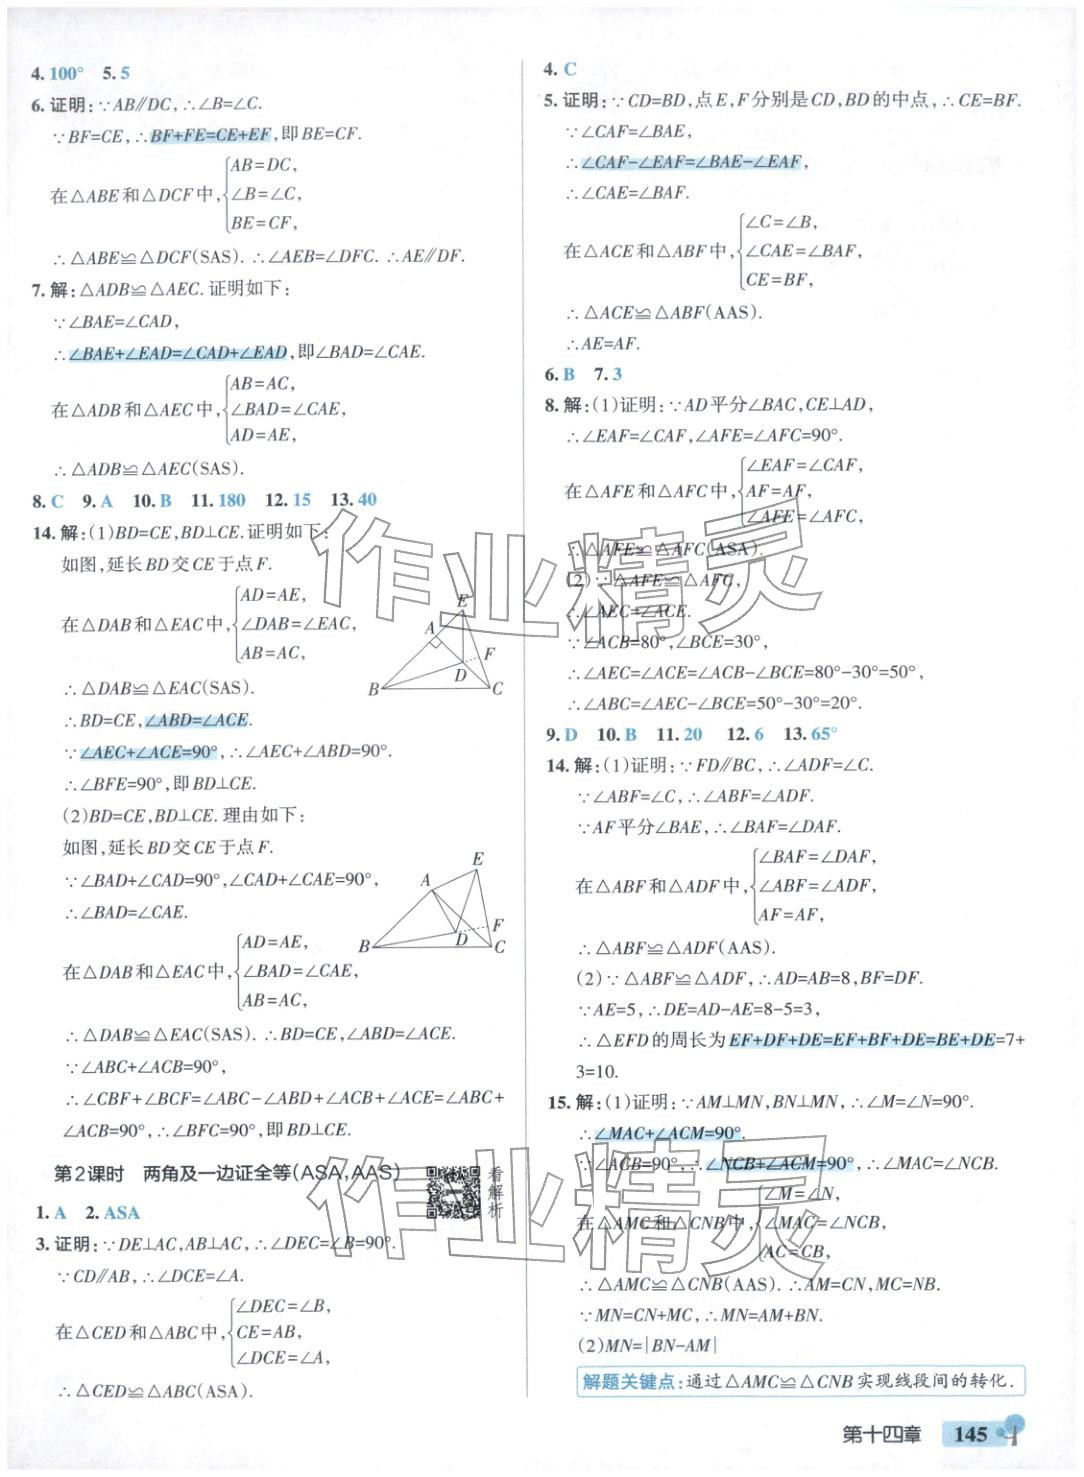 4. 100°  5. 5
6. 证明:∵AB∥DC,∴∠B=∠C.
∵BF=CE,∴BF+FE=CE+EF,即BE=CF.
在△ABE和△DCF中,{AB=DC,
∠B=∠C,
BE=CF,
∴△ABE≌△DCF(SAS).∴∠AEB=∠DFC.∴AE∥DF.
7. 解:△ADB≌△AEC.证明如下:
∵∠BAE=∠CAD,
∴∠BAE+∠EAD=∠CAD+∠EAD,即∠BAD=∠CAE.
在△ADB和△AEC中,{AB=AC,
∠BAD=∠CAE,
AD=AE,
∴△ADB≌△AEC(SAS).
8. C  9. A  10. B  11. 180  12. 15  13. 40
14. 解:(1)BD=CE,BD⊥CE.证明如下:
如图,延长BD交CE于点F.
在△DAB和△EAC中,{AD=AE,
∠DAB=∠EAC,
AB=AC,
∴△DAB≌△EAC(SAS).
∴BD=CE,∠ABD=∠ACE.
∵∠AEC+∠ACE=90°,∴∠AEC+∠ABD=90°.
∴∠BFE=90°,即BD⊥CE.
E
A
F
D
B
C
(2)BD=CE,BD⊥CE.理由如下:
如图,延长BD交CE于点F.
∵∠BAD+∠CAD=90°,∠CAD+∠CAE=90°,
∴∠BAD=∠CAE.
在△DAB和△EAC中,{AD=AE,
∠BAD=∠CAE,
AB=AC,
E
A
F
D
B
C
∴△DAB≌△EAC(SAS).∴BD=CE,∠ABD=∠ACE.
∵∠ABC+∠ACB=90°,
∴∠CBF+∠BCF=∠ABC-∠ABD+∠ACB+∠ACE=∠ABC+
∠ACB=90°,∴∠BFC=90°,即BD⊥CE.
第2课时 两角及一边证全等(ASA,AAS)
看解析
1. A  2. ASA
3. 证明:∵DE⊥AC,AB⊥AC,∴∠DEC=∠B=90°.
∵CD∥AB,∴∠DCE=∠A.
在△CED和△ABC中,{∠DEC=∠B,
CE=AB,
∠DCE=∠A,
∴△CED≌△ABC(ASA).
4. C
5. 证明:∵CD=BD,点E,F分别是CD,BD的中点,∴CE=BF.
∵∠CAF=∠BAE,
∴∠CAF-∠EAF=∠BAE-∠EAF,
∴∠CAE=∠BAF.
在△ACE和△ABF中,{∠C=∠B,
∠CAE=∠BAF,
CE=BF,
∴△ACE≌△ABF(AAS).
∴AE=AF.
6. B  7. 3
8. 解:(1)证明:∵AD平分∠BAC,CE⊥AD,
∴∠EAF=∠CAF,∠AFE=∠AFC=90°.
在△AFE和△AFC中,{∠EAF=∠CAF,
AF=AF,
∠AFE=∠AFC,
∴△AFE≌△AFC(ASA).
(2)∵△AFE≌△AFC,
∴∠AEC=∠ACE.
∵∠ACB=80°,∠BCE=30°,
∴∠AEC=∠ACE=∠ACB-∠BCE=80°-30°=50°,
∴∠ABC=∠AEC-∠BCE=50°-30°=20°.
9. D  10. B  11. 20  12. 6  13. 65°
14. 解:(1)证明:∵FD∥BC,∴∠ADF=∠C.
∵∠ABF=∠C,∴∠ABF=∠ADF.
∵AF平分∠BAE,∴∠BAF=∠DAF.
在△ABF和△ADF中,{∠BAF=∠DAF,
∠ABF=∠ADF,
AF=AF,
∴△ABF≌△ADF(AAS).
(2)∵△ABF≌△ADF,∴AD=AB=8,BF=DF.
∵AE=5,∴DE=AD-AE=8-5=3,
∴△EFD的周长为EF+DF+DE=EF+BF+DE=BE+DE=7+
3=10.
15. 解:(1)证明:∵AM⊥MN,BN⊥MN,∴∠M=∠N=90°.
∴∠MAC+∠ACM=90°.
∵∠ACB=90°,∴∠NCB+∠ACM=90°,∴∠MAC=∠NCB.
在△AMC和△CNB中,{∠M=∠N,
∠MAC=∠NCB,
AC=CB,
∴△AMC≌△CNB(AAS).∴AM=CN,MC=NB.
∵MN=CN+MC,∴MN=AM+BN.
(2)MN=|BN-AM|
解题关键点:通过△AMC≌△CNB实现线段间的转化.
作业精灵
作业精灵
第十四章 145